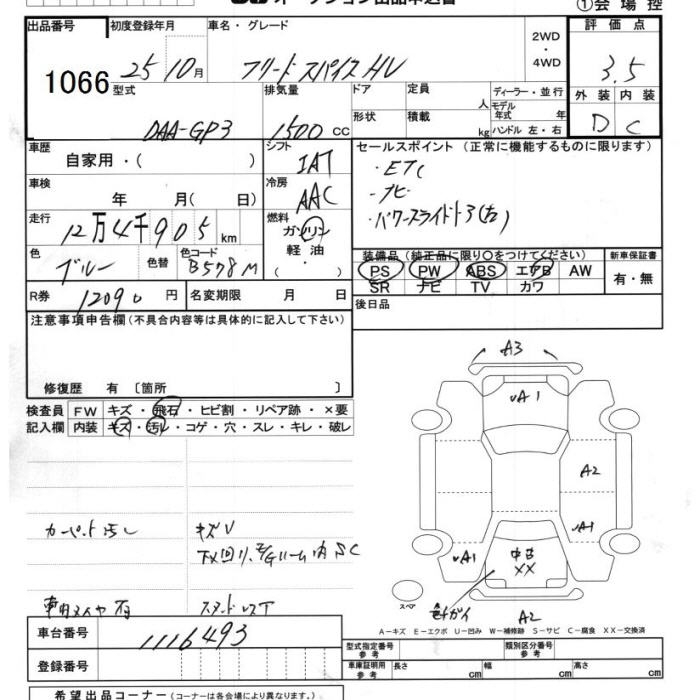 オークション出品申込書
①会場控
出品番号 初度登録年月 車名・グレード 2WD ・ 4WD 評価点
1066 25 10月 フリードスパイスHV 3.5
型式 排気量 ドア 定員 人 ディーラー・並行 外装 内装
DAA-GP3 1500 cc 形状 積載 kg モデル年式 年 ハンドル 左・右 D C
車歴 自家用・( ) シフト IAT セールスポイント (正常に機能するものに限ります)
・ETC
車検 年 月( 日) 冷房 AAC ・ナビ
走行 12万4千905km 燃料 ガソリン 軽油 ( ・ ) ・パワースライドドア(右)
色 ブルー 色替 色コード B578M 装備品 (純正品に限り○をつけてください) 新車保証書
PS PW ABS エアB AW 有・無
SR ナビ TV カワ
R券 12090円 名変期限 月 日 後日品
注意事項申告欄 (不具合内容等は具体的に記入して下さい)
修復歴 有 〔箇所 〕
検査員 FW キズ・飛石・ヒビ割・リペア跡・×要
記入欄 内装 キズ・汚レ・コゲ・穴・スレ・キレ・破レ
A3
A1
A2
A1
A1
中古
XX
A2
スペア
カーペット汚レ キズV
下廻り、E/Gルーム内SC
A-キズ E-エクボ U-凹み W-補修跡 S-サビ C-腐食 XX-交換済
車台番号 1116493
型式指定番号 参考 類別区分番号 参考
登録番号 車庫証明用 参考 長さ cm 幅 cm 高さ cm
希望出品コーナー (コーナーは各会場により異なります。)